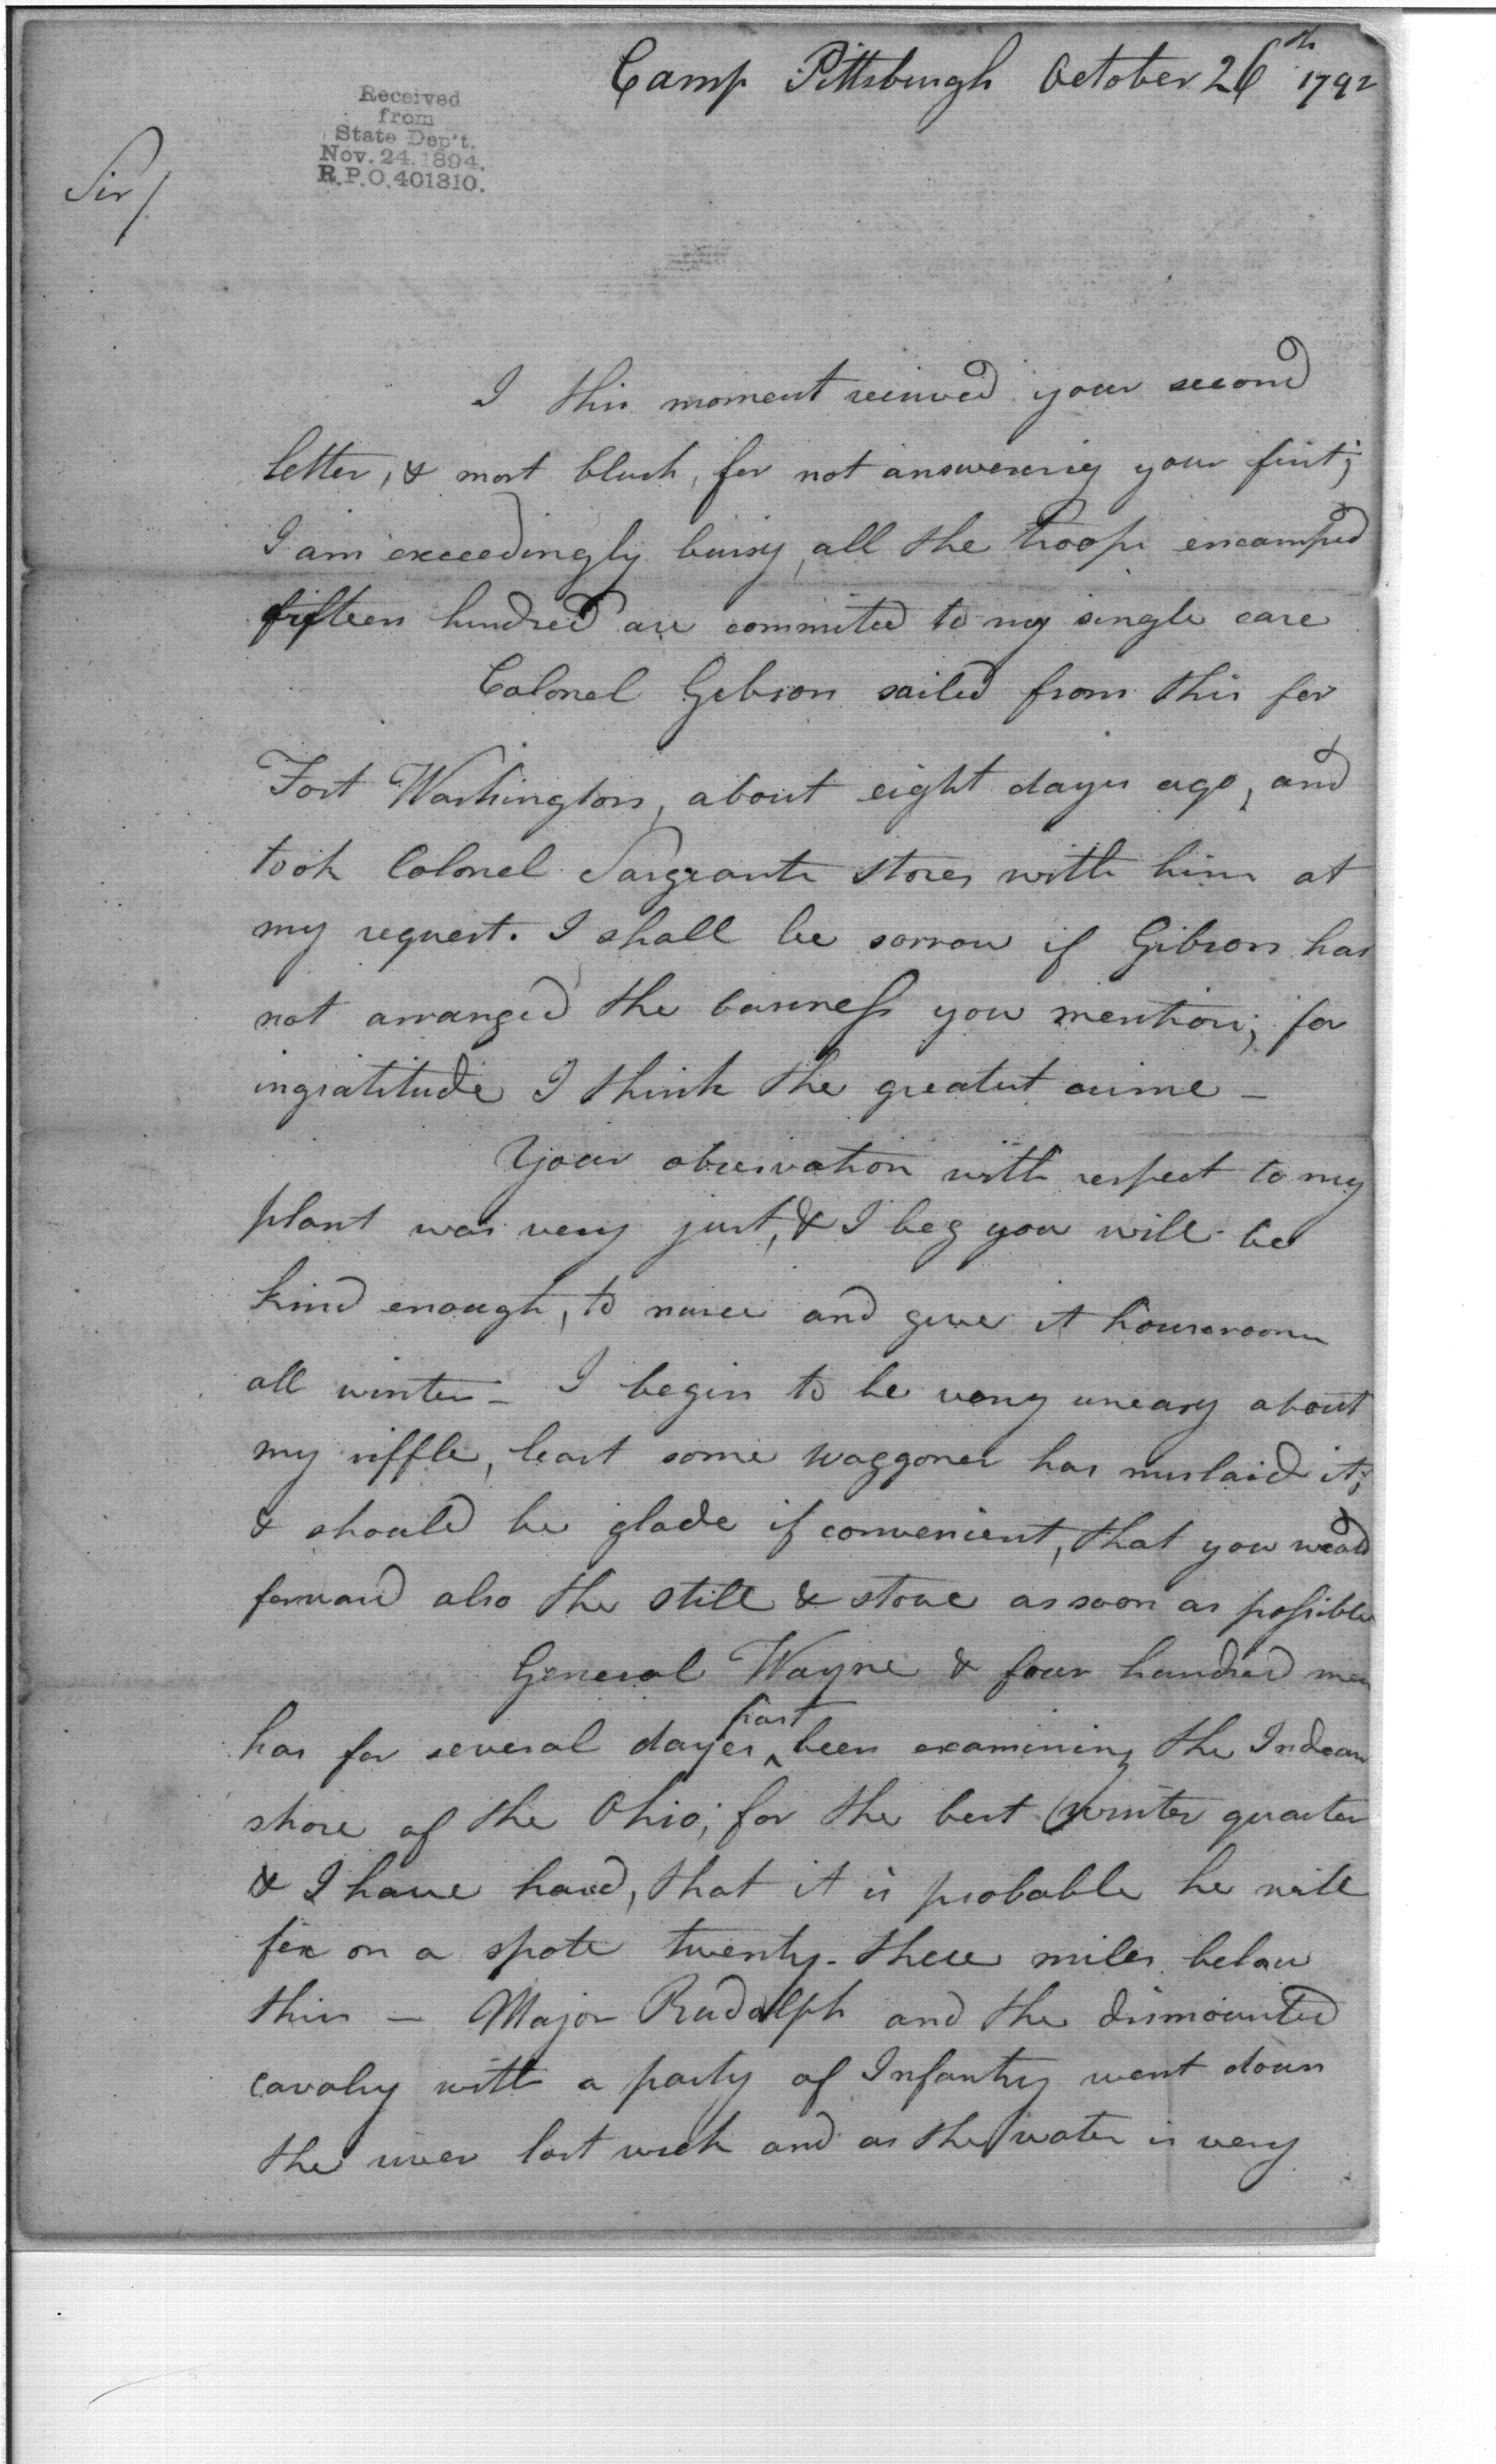 Camp Pittsburgh October 26th 1792
Received
from
State Dep't.
Nov. 24. 1894.
R.P.O. 401310.
Sir/
I this moment received your second
letter, & most blush, for not answereing your first;
I am exceedingly buisy, all the troops encamped
fifteen hundred are commited to my single care
Colonel Gibson sailed from this for
Fort Washington, about eight dayes ago, and
took Colonel Sargeants stores with him at
my request. I shall be sorrow if Gibson has
not arranged the business you mention; for
ingratitude I think the greatest crime –
Your observation with respect to my
plant was very just, & I beg you will be
kind enough, to nurse and give it houseroom
all winter – I begin to be very uneasy about
my riffle, least some waggoner has mislaid it;
& should be glade if convenient, that you would
forward also the still & stove as soon as possible
General Wayne & four hundred men
has for several dayes past been examining the Indean
shore of the Ohio; for the best winter quarter
& I have hard, that it is probable he will
fix on a spote twenty-three miles below
this – Major Rudolph and the dismounted
cavalry with a party of Infantry went down
the river last week and as the water is very